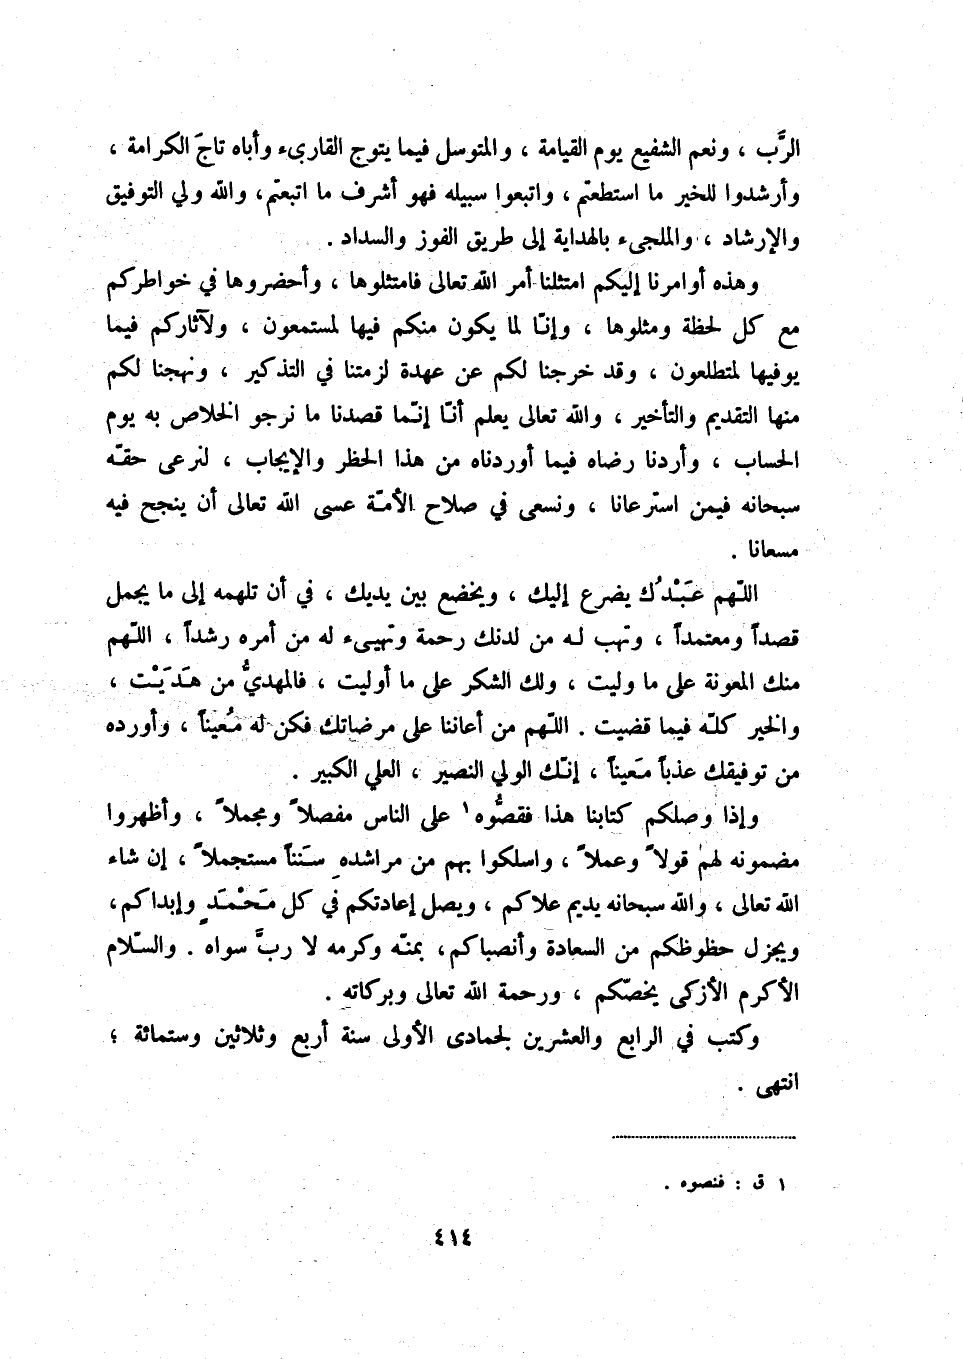 الربَّ ، ونعم الشفيع يوم القيامة ، والمتوسل فيما يتوج القارىء وأباه تاجَ الكرامة ،
وأرشدوا للخير ما استطعتم ، واتبعوا سبيله فهو أشرف ما اتبعتم ، والله ولي التوفيق
والإرشاد ، والملجىء بالهداية إلى طريق الفوز والسداد .
وهذه أوامرنا إليكم امتثلنا أمر الله تعالى فامتثلوها ، وأحضروها في خواطركم
مع كل لحظة ومثلوها ، وإنّا لما يكون منكم فيها لمستمعون ، ولآثاركم فيما
يوفيها لمتطلعون ، وقد خرجنا لكم عن عهدة لزمتنا في التذكير ، ونهجنا لكم
منها التقديم والتأخير ، والله تعالى يعلم أنّا إنّما قصدنا ما نرجو الخلاص به يوم
الحساب ، وأردنا رضاه فيما أوردناه من هذا الحظر والإيجاب ، لنرعى حقّه
سبحانه فيمن استرعانا ، ونسعى في صلاح الأمّة عسى الله تعالى أن ينجح فيه
مسعانا .
اللّهم عَبْدُك يضرع إليك ، ويخضع بين يديك ، في أن تلهمه إلى ما يجمل
قصداً ومعتمداً ، وتهب له من لدنك رحمة وتهيىء له من أمره رشداً ، اللّهم
منك المعونة على ما وليت ، ولك الشكر على ما أوليت ، فالمهديُّ من هَدَيْت ،
والخير كلّه فيما قضيت . اللّهم من أعاننا على مرضاتك فكن له مُعيناً ، وأورده
من توفيقك عذباً مَعيناً ، إنّك الولي النصير ، العلي الكبير .
وإذا وصلكم كتابنا هذا فقصُّوه١ على الناس مفصلاً ومجملاً ، وأظهروا
مضمونه لهم قولاً وعملاً ، واسلكوا بهم من مراشده سَنناً مستجملاً ، إن شاء
الله تعالى ، والله سبحانه يديم علاكم ، ويصل إعادتكم في كل مَحْمَدٍ وإبداكم ،
ويجزل حظوظكم من السعادة وأنصباكم ، بمنّه وكرمه لا ربَّ سواه . والسّلام
الأكرم الأزكى يخصّكم ، ورحمة الله تعالى وبركاته .
وكتب في الرابع والعشرين لجمادى الأولى سنة أربع وثلاثين وستمائة ؛
انتهى .
١ ق : فنصوه .
٤١٤